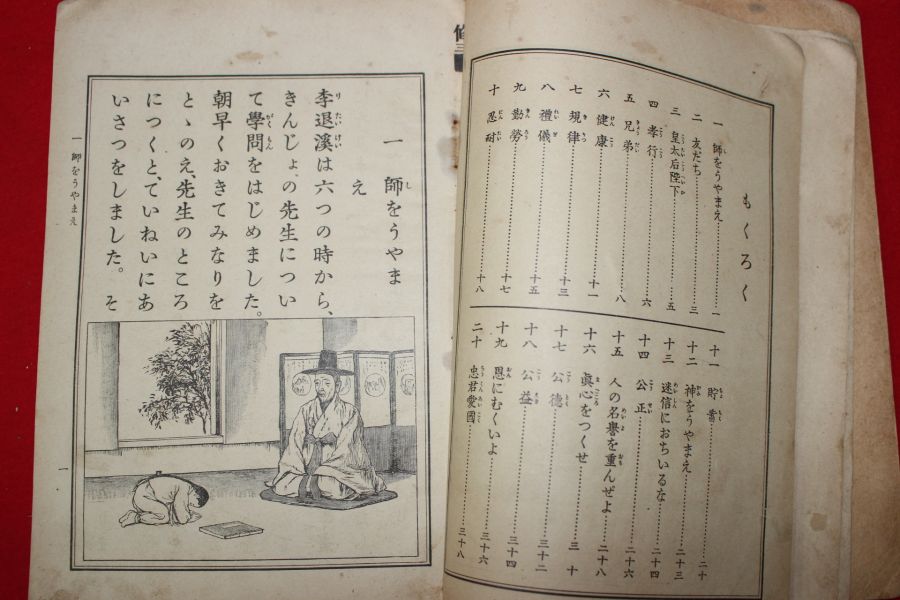 修
三
もくろく
一 師をうやまえ……一
二 友だち……三
三 皇太后陛下……五
四 孝行……六
五 兄弟……八
六 健康……十一
七 規律……十三
八 禮儀……十五
九 勤勞……十七
十 忍耐……十八
十一 貯蓄……二十
十二 神をうやまえ……二十三
十三 迷信におちいるな……二十四
十四 公正……二十六
十五 人の名譽を重んぜよ……二十八
十六 眞心をつくせ……三十
十七 公德……三十二
十八 公益……三十四
十九 恩にむくいよ……三十六
二十 忠君愛國……三十八
一 師をうやま
え
李退溪は六つの時から、
きんじょの先生につい
て學問をはじめました。
朝早くおきてみなりを
とゝのえ、先生のところ
につくと、ていねいにあ
いさつをしました。そ
一 師をうやまえ
一